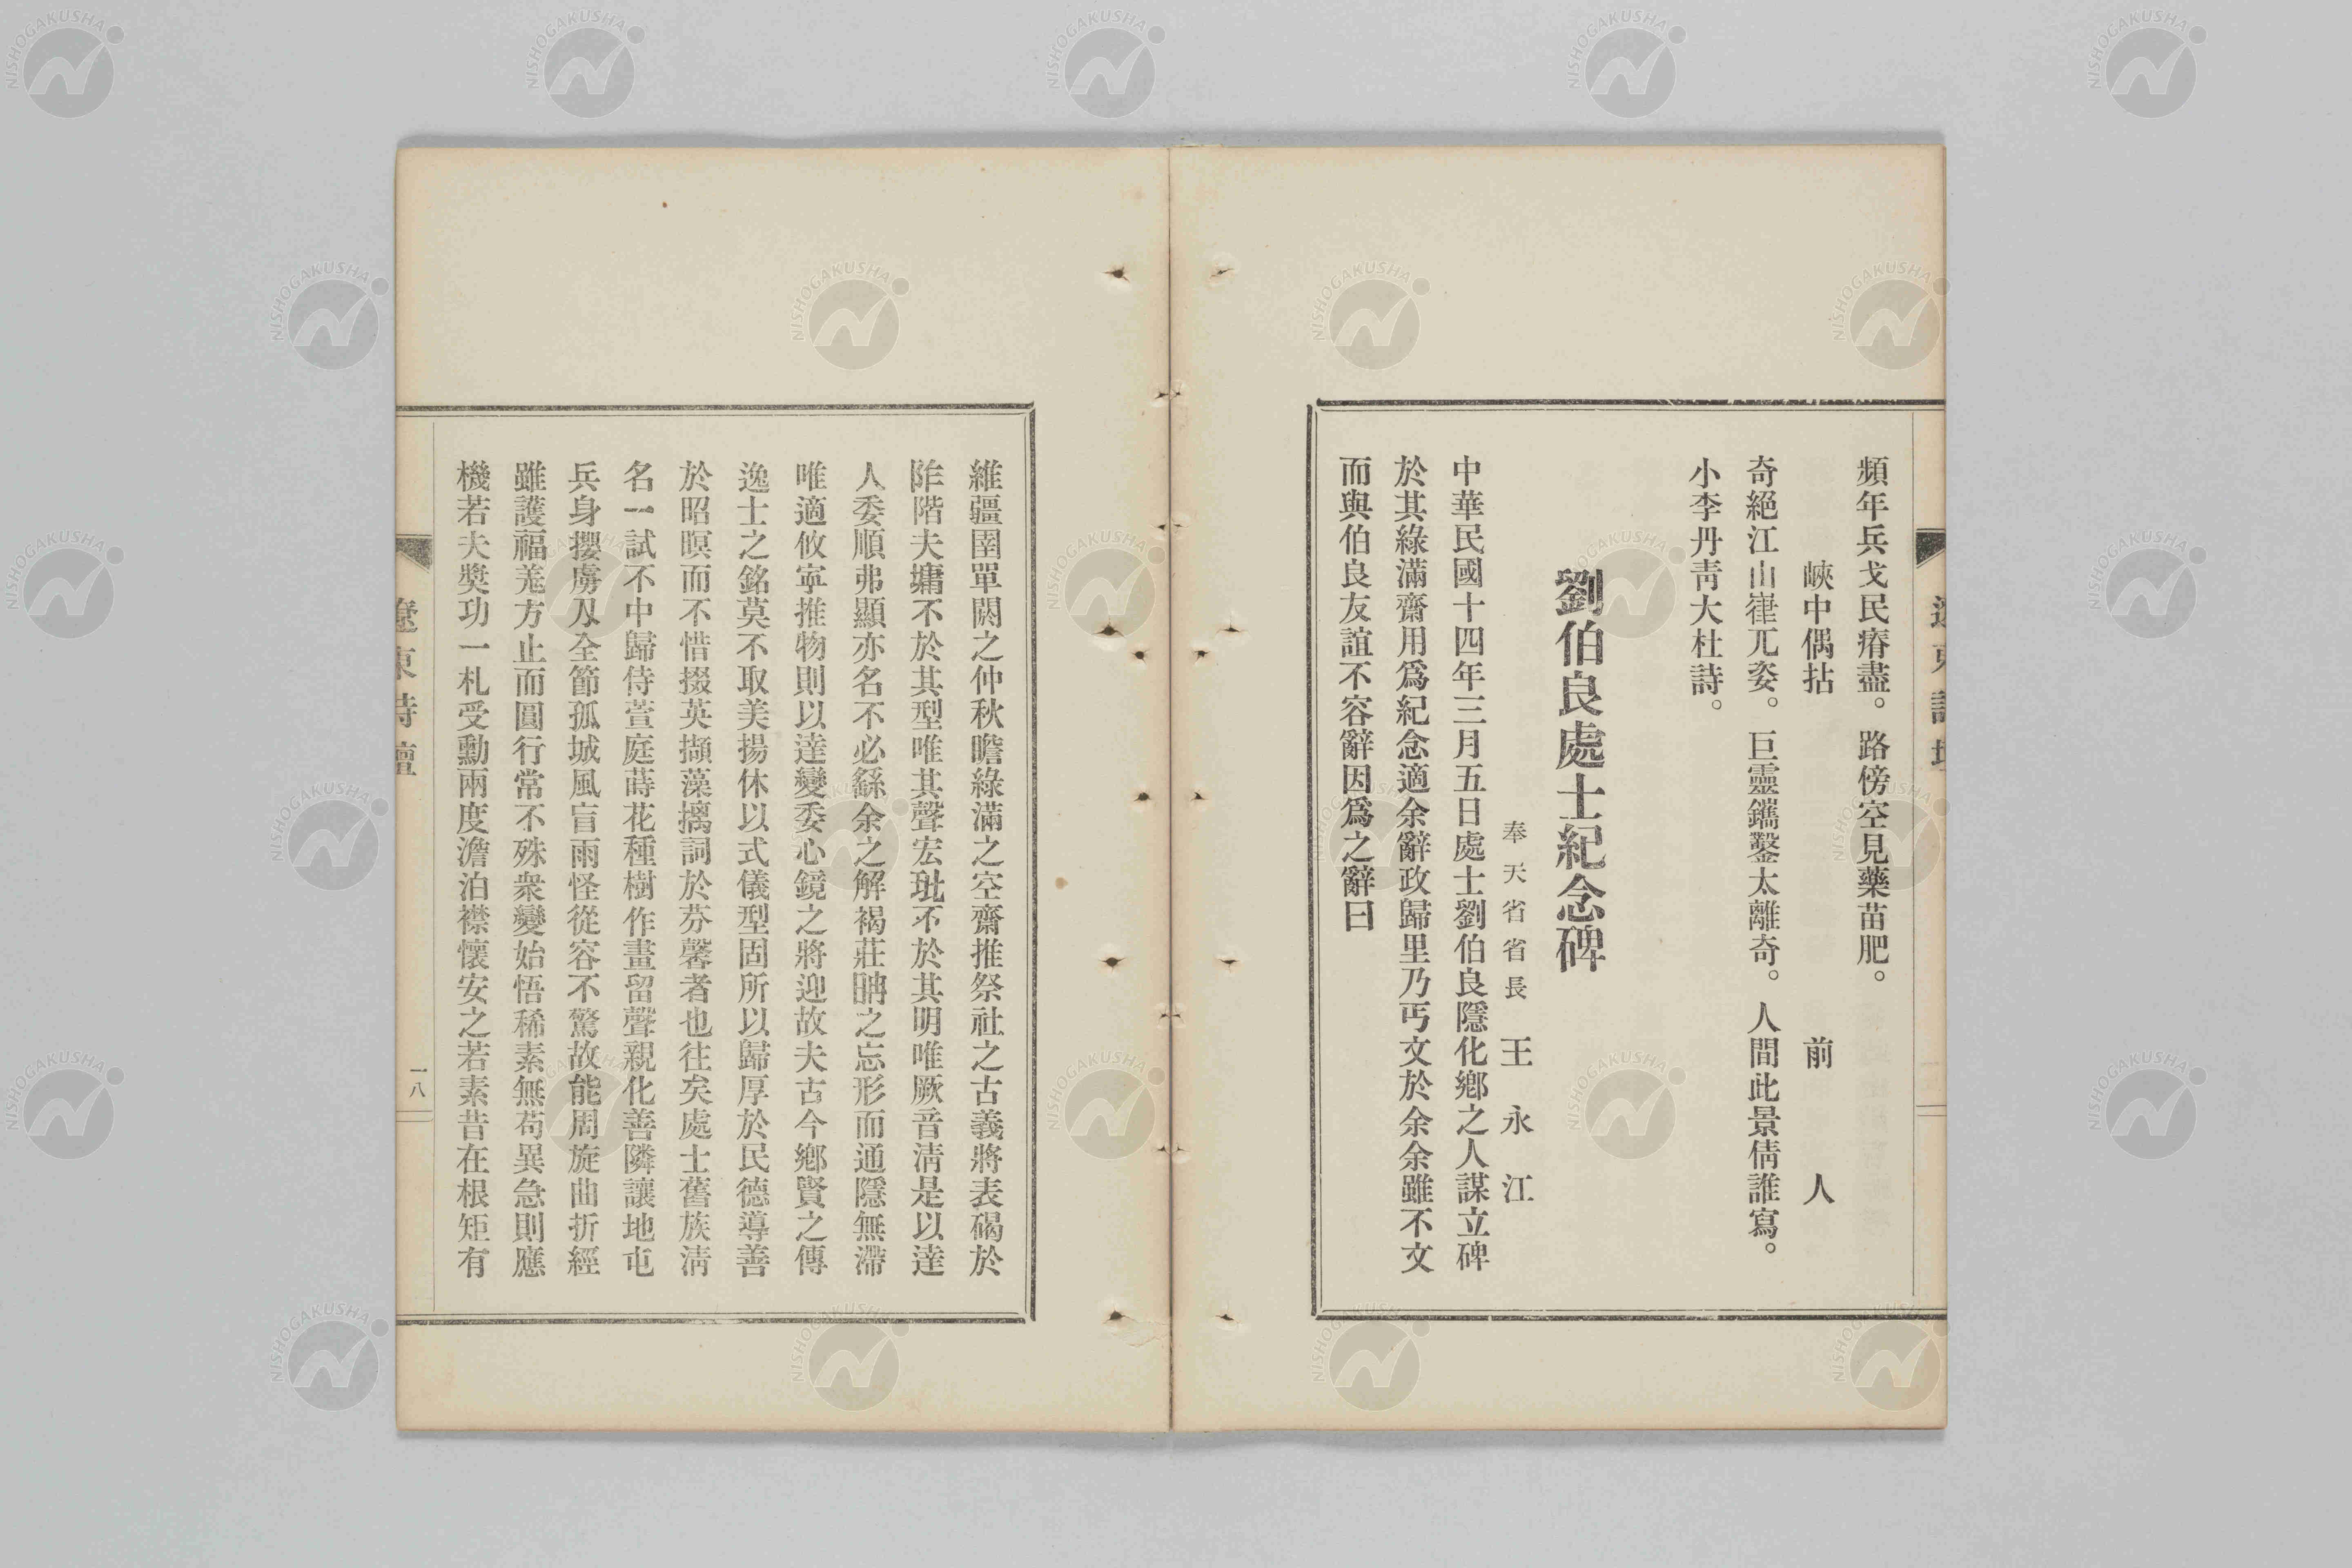 頻年兵戈民瘠盡。路傍空見藥苗肥。
峽中偶拈　前人
奇絕江山嵂兀姿。巨靈鑴鑿太離奇。人間此景倩誰寫。
小李丹靑大杜詩。
劉伯良處士紀念碑
奉天省省長　王永江
中華民國十四年三月五日處士劉伯良隱化鄕之人謀立碑
於其綠滿齋用爲紀念適余辭政歸里乃丐文於余余雖不文
而與伯良友誼不容辭因爲之辭曰
維疆圉單閼之仲秋瞻綠滿之空齋推祭社之古義將表碣於
阼階夫墉不於其型唯其聲宏玭不於其明唯厥音淸是以達
人委順弗顯亦名不必繇余之解褐莊聃之忘形而通隱無滯
唯適攸寧推物則以達變委心鏡之將迎故夫古今鄕賢之傳
逸士之銘莫不取美揚休以式儀型固所以歸厚於民德導善
於昭暝而不惜掇英擷藻摛詞於芬馨者也往矣處士舊族淸
名一試不中歸侍萱庭蒔花種樹作畫留聲親化善隣讓地屯
兵身攖虜刄全節孤城風盲雨怪從容不驚故能周旋曲折經
雖護福羌方止而圓行常不殊衆變始悟稀素無苟異急則應
機若夫奬功一札受勳兩度澹泊襟懷安之若素昔在根矩有
遼東詩壇
一八
NISHOGAKUSHA